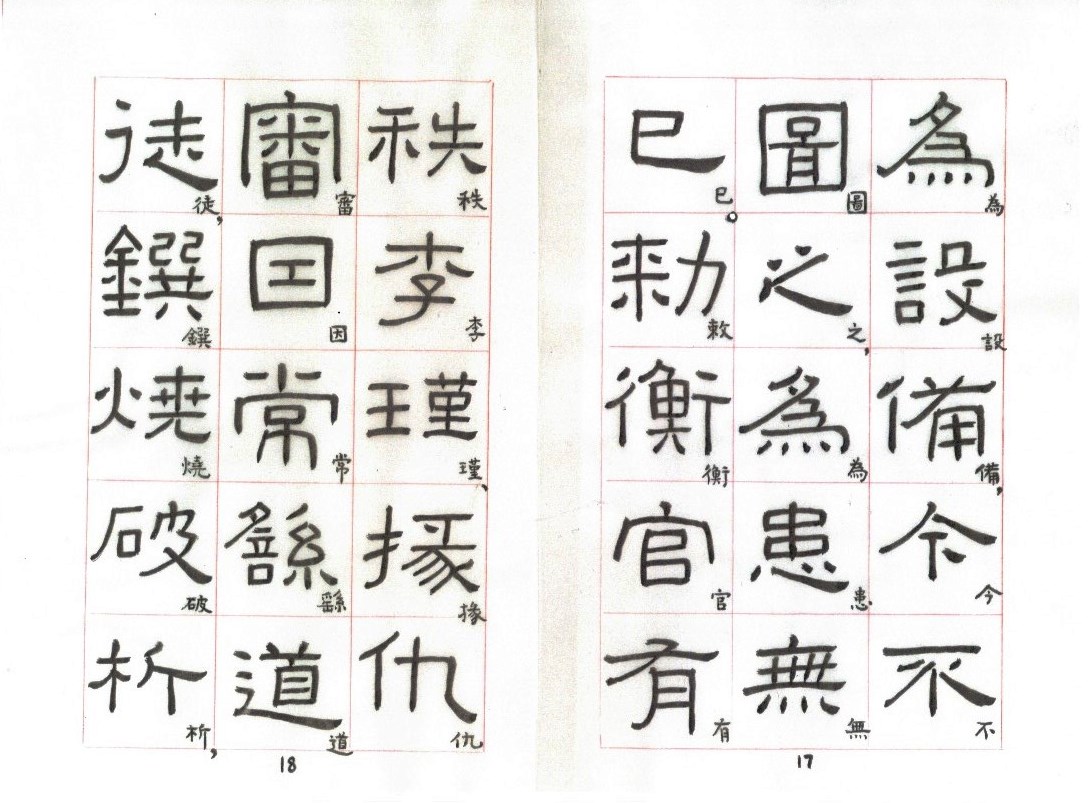 為設備今不
為設備，今不
圖之為患無
圖之，為患無
已勑衡官有
已。敕衡官有
17
秩李瑾掾仇
秩李瑾、掾仇
審因常繇道
審因常繇道
徒鐉燒破析
徒，鐉燒破析，
18